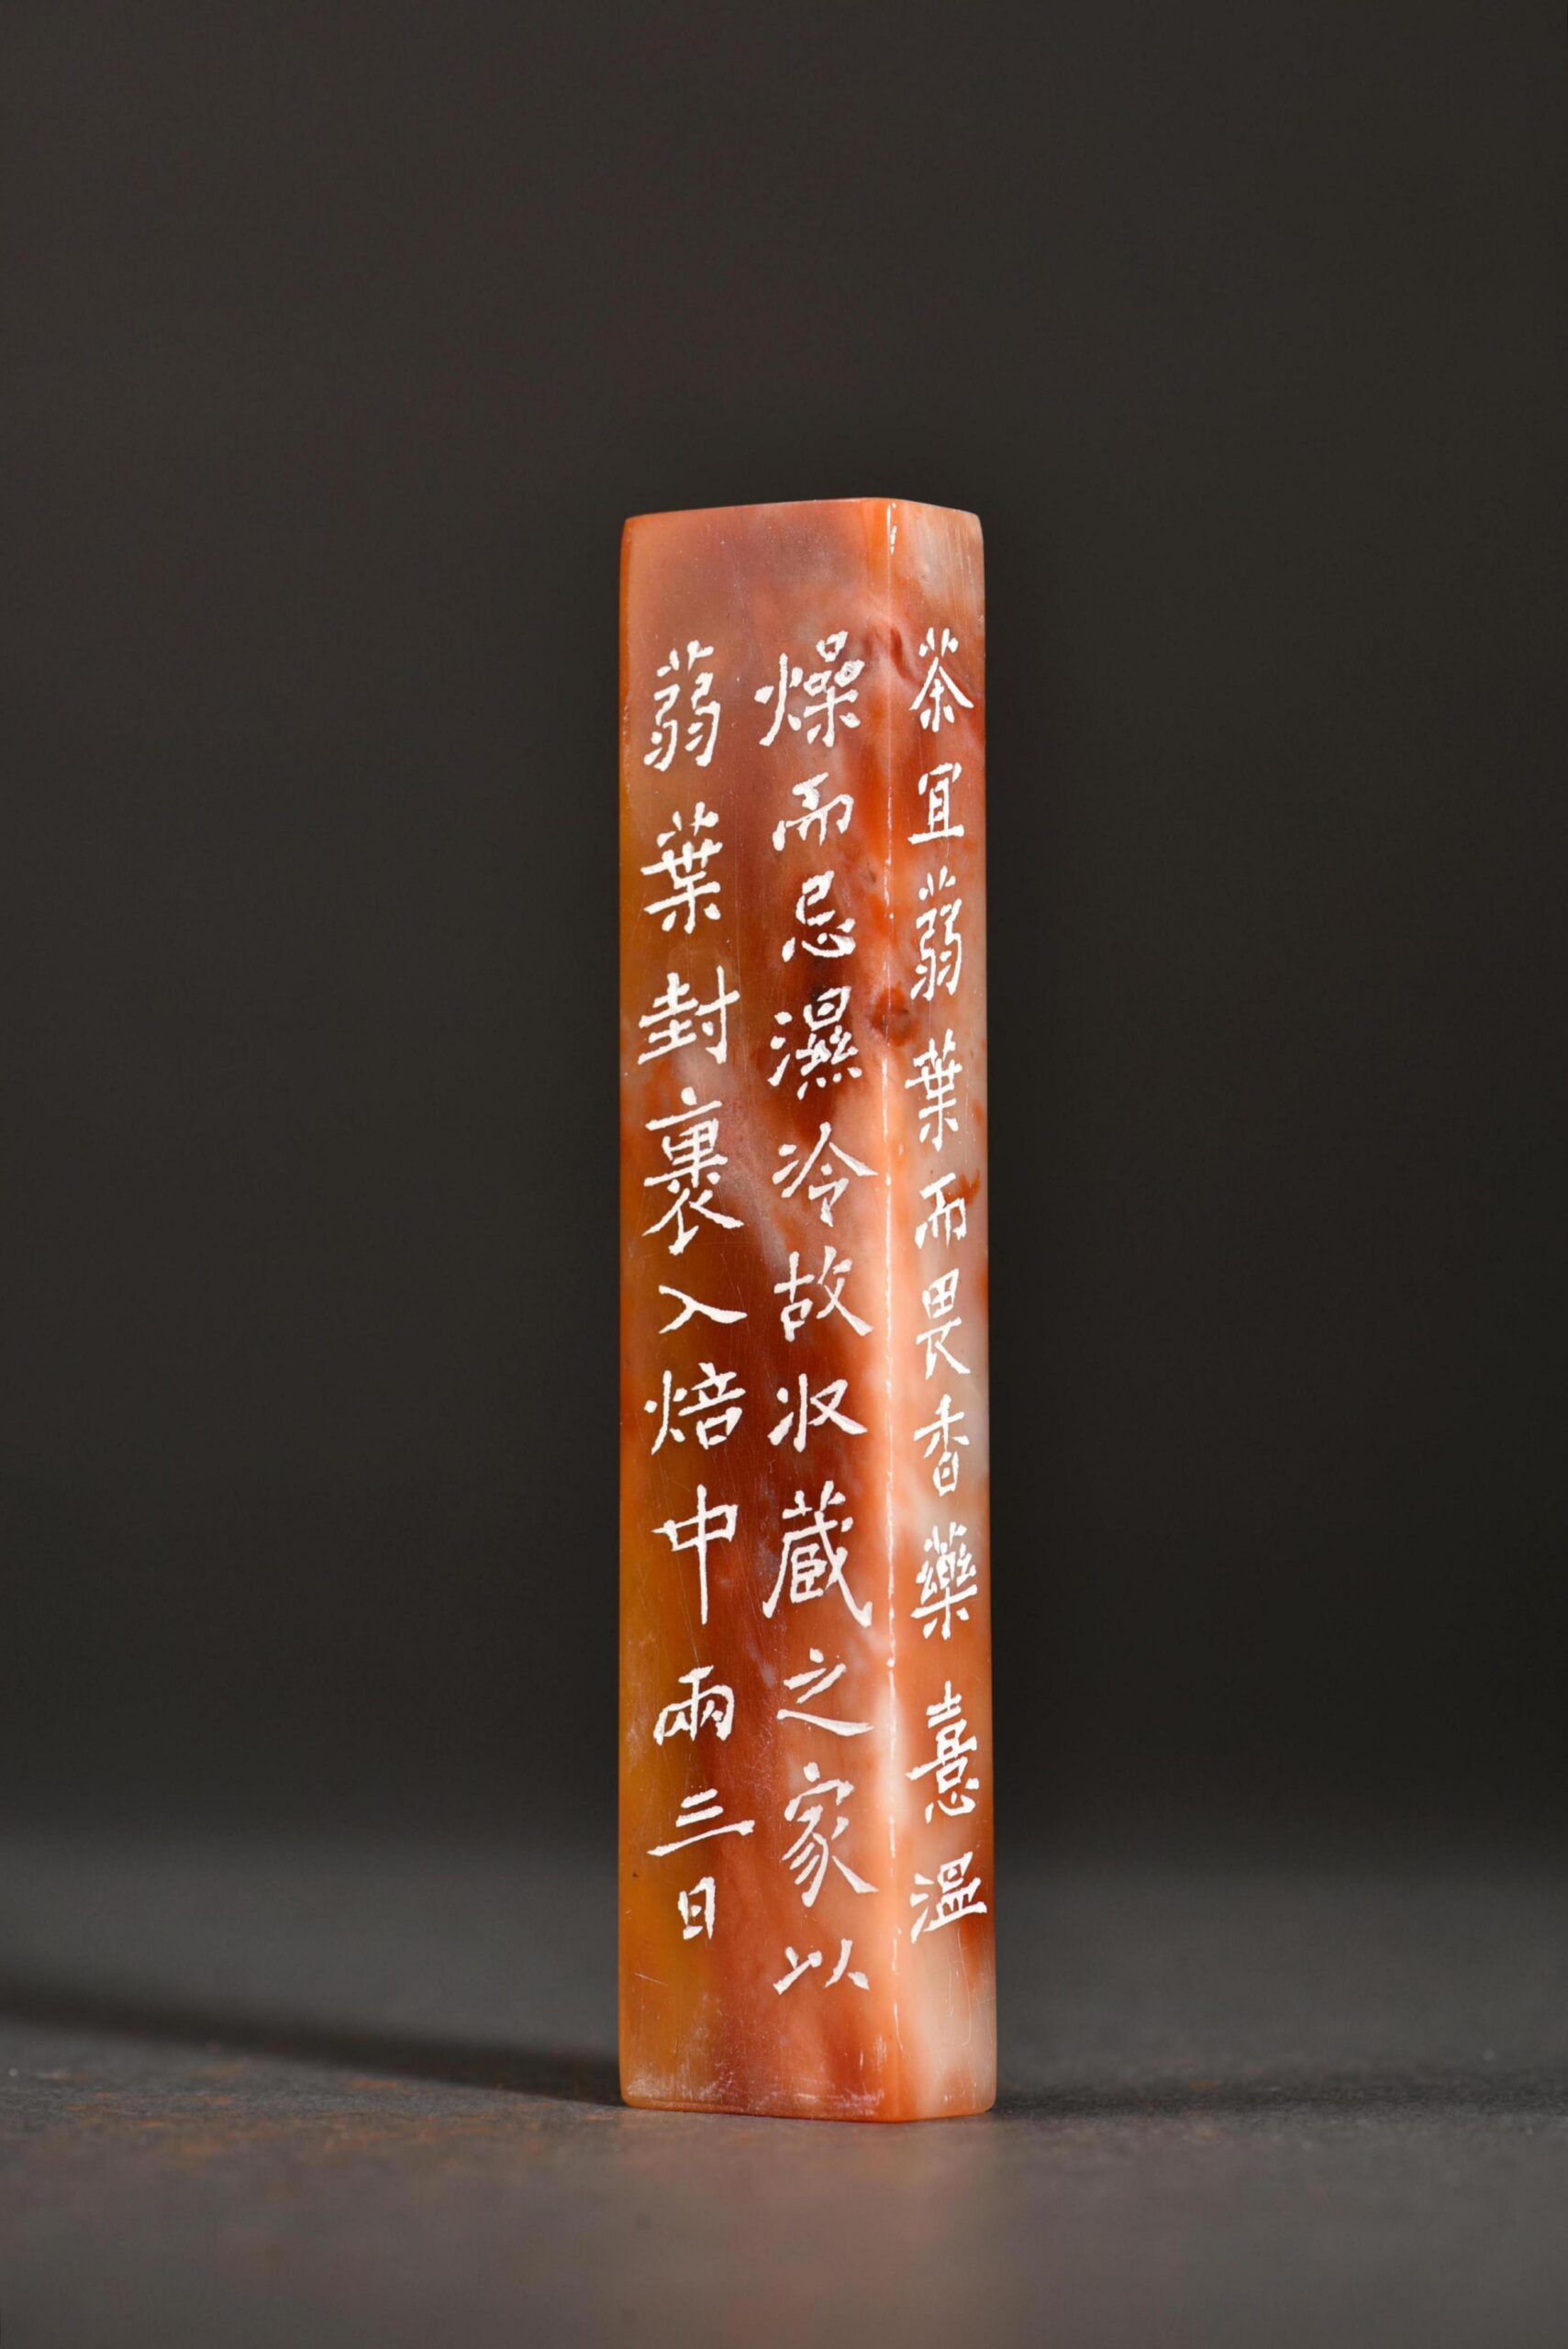 茶宜蒻葉而畏香藥憙溫
燥而忌濕冷故収蔵之家以
蒻葉封裹入焙中兩三日